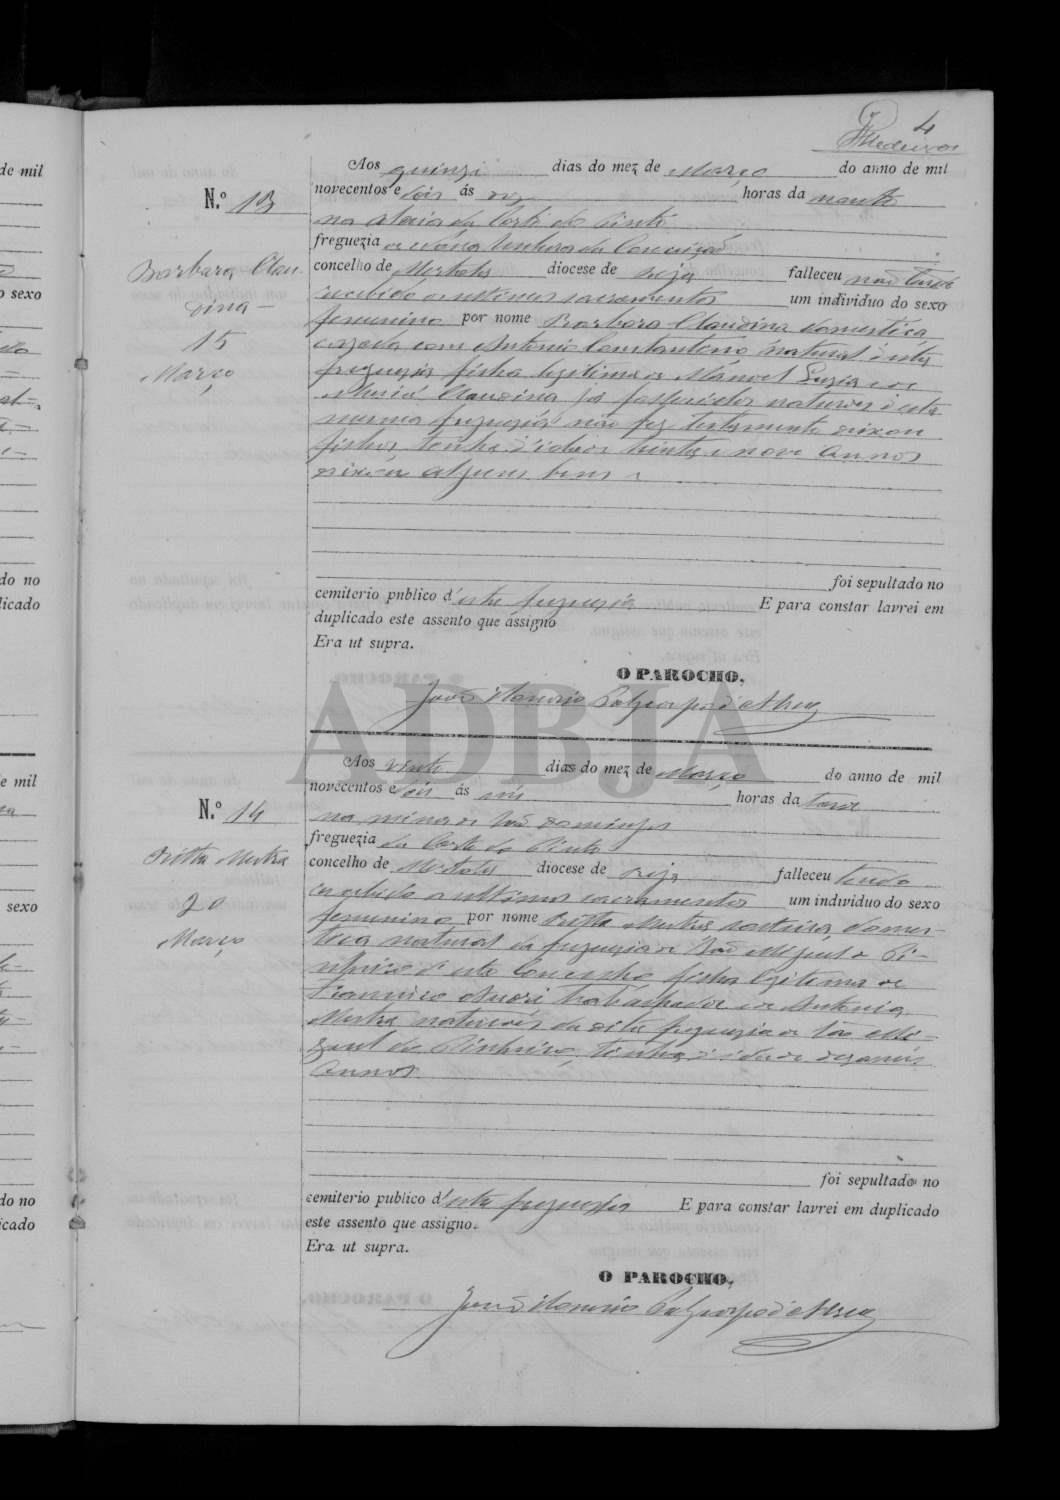 4
Medeiros
de mil
sexo
do no
licado
e mil
sexo
do no
icado
N.º 13
Barbara Clau
dina
15
Março
Aos quinze dias do mez de Março do anno de mil
novecentos e dois ás dez horas da manhã
na aldeia da Corte do Pinto
freguezia de Nossa Senhora da Conceição
concelho de Mertola diocese de Beja falleceu não tendo
recebido os ultimos sacramentos um individuo do sexo
femenino por nome Barbara Claudina domestica
cazada com Antonio Constantino natural d'esta
freguezia filha legitima de Manoel Luzia e de
Maria Claudina já fallecidos naturaes d'esta
mesma freguezia não fez testamento deixou
filhos, tinha d'idade trinta e nove annos
deixou alguns bens
foi sepultado no
cemiterio publico d'esta freguezia E para constar lavrei em
duplicado este assento que assigno
Era ut supra.
O PAROCHO,
João
ADBJA
N.º 14
Ritta Mestra
20
Março
Aos vinte dias do mez de Março do anno de mil
novecentos e dois ás seis horas da tarde
na mina de São Domingos
freguezia da Corte do Pinto
concelho de Mertola diocese de Beja falleceu tendo
recebido os ultimos sacramentos um individuo do sexo
femenino por nome Ritta Mestra solteira, domes-
tica natural da freguezia de São Miguel do Pi-
nheiro d'este Concelho, filha legitima de
Francisco trabalhador e de Antonia
Mestra naturaes da dita freguezia de São Mi-
guel do Pinheiro, tinha d'idade dezaseis
annos
foi sepultado no
cemiterio publico d'esta freguezia E para constar lavrei em duplicado
este assento que assigno.
Era ut supra.
O PAROCHO,
João